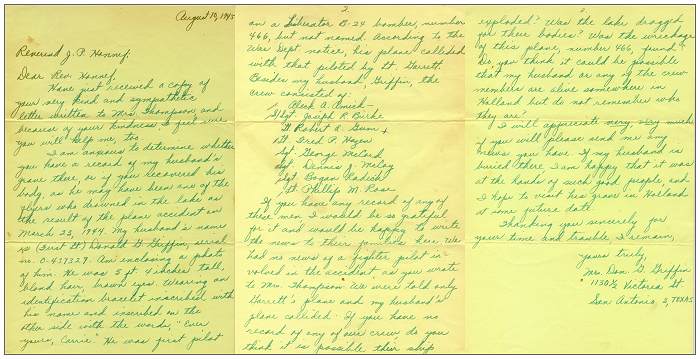 August 19, 1945
Reverend J. P. Hennef,
Dear Rev. Hennef,
Have just received a copy of
your very kind and sympathetic
letter written to Mrs. Thompson, and
because of your kindness I feel sure
you will help me too.
I am anxious to determine whether
you have a record of my husband's
grave there, or if you recovered his
body, as he may have been one of the
flyers who drowned in the lake as
the result of the plane accident on
March 23, 1944. My husband's name
is (First Lt.) Donald G. Griffin, serial
no. 0-437329. Am enclosing a photo
of him. He was 5 ft 4 inches tall,
blond hair, brown eyes. Wearing an
identification bracelet inscribed with
his name and inscribed on the
other side with the words, "Ever
yours, Carrie." He was first pilot
2.
on a Liberator B-24 bomber, number
466, but not named. According to the
War Dept notice, his plane collided
with that piloted by Lt. Garrett.
Besides my husband, Griffin, the
crew consisted of:
Aleck A. Amick
S/Sgt. Joseph R. Birke
Lt Robert A. Gunn
Lt Fred P. Hazen
Sgt George McCord
Sgt Dennis J.
Sgt Bogan Radich
Lt. Phillip M. Rose
If you have any record of any of
these men I would be so grateful
for it and would be happy to write
the news to their families here. We
had no news of a fighter pilot in-
volved in the accident, as you wrote
to Mrs. Thompson. We were told only
Garrett's plane and my husband's
plane collided. If you have no
record of any of our crew, do you
think it is possible their ship
3.
exploded? Was the lake dragged
for these bodies? Was the wreckage
of this plane, number 466, found?
Do you think it could be possible
that my husband or any of the crew
members are alive somewhere in
Holland but do not remember who
they are?
I will appreciate very very much
if you will please send me any
news you have. If my husband is
buried there I am happy that it was
at the hands of such good people, and
I hope to visit his grave in Holland
at some future date.
Thanking you sincerely for
your time and trouble, I remain,
yours truly,
Mrs. Don G. Griffin
1130½ Victoria St
San Antonio, 3, TEXAS